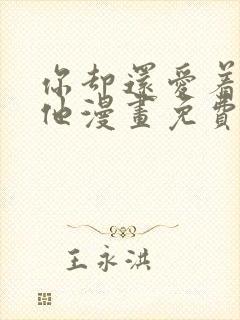 你却還愛着
他漫畫免費
王永洪